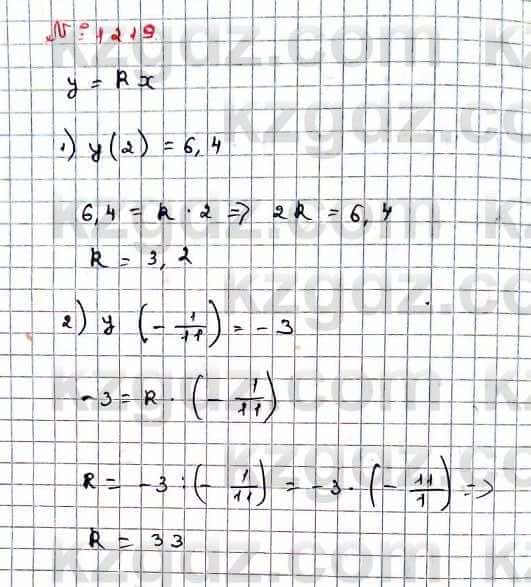 № 1219
y = k x
1) y(2) = 6,4
6,4 = k · 2 => 2k = 6,4
k = 3,2
2) y (- 1/11) = -3
-3 = k · (- 1/11)
k = -3 : (- 1/11) = -3 · (- 11/1) =>
k = 33
kzgdz.com